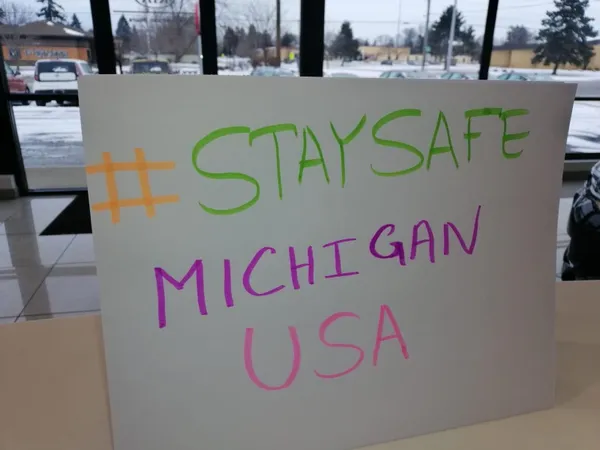 #STAYSAFE
MICHIGAN
USA